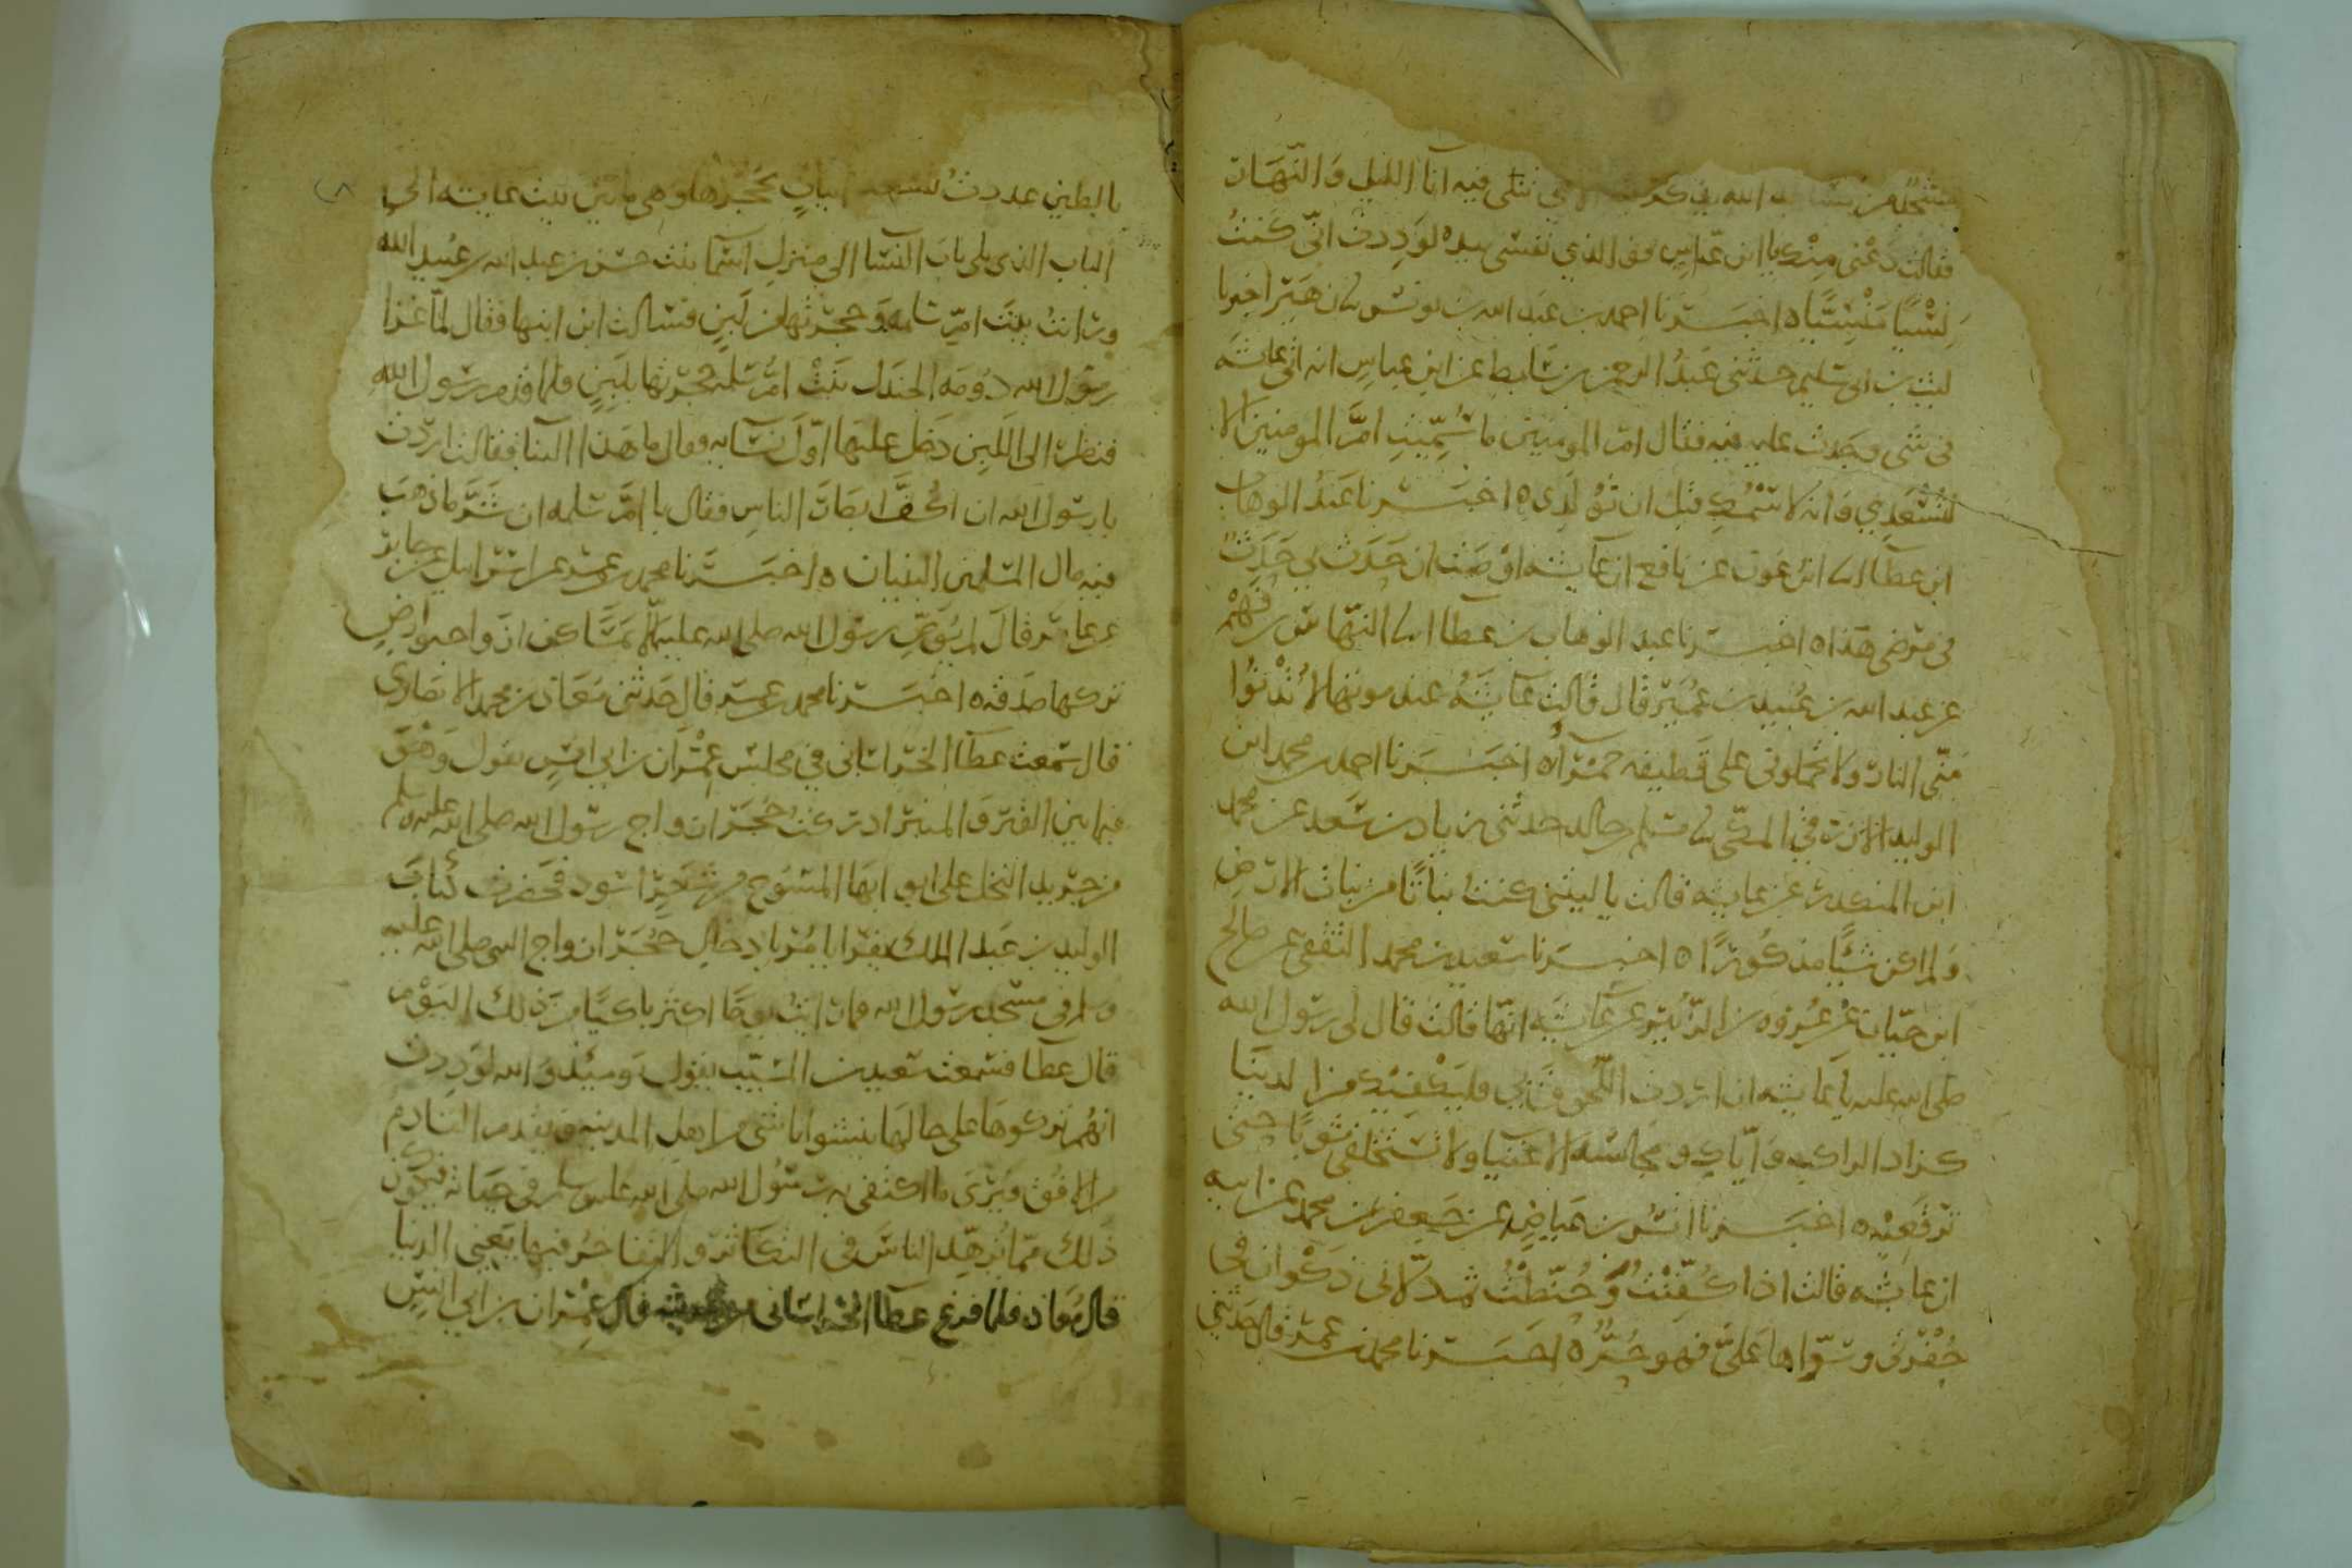 مسجد من مساجد الله يذكر الله يتلى فيه آناء الليل والنهار
فقالت دعنى منك يا ابن عباس فو الذي نفسى بيده لوددت انى كنت
نسيا منسيا ه اخبرنا احمد بن عبد الله بن يونس زهير اخبرنا
ليث بن ابى سليم حدثنى عبد الرحمن بن سابط عن ابن عباس انه اتى عايشه
فى شى وجدت عليه فيه فقال ام المومنين ما سميت ام المومنين الا
لتسعدي وانه لاسمك قبل ان تولدى ه اخبرنا عبد الوهاب
ابن عطا انا ابن عون عن نافع ان عايشه اوصت ان حدث بي حدث
فى مرضى هذا ه اخبرنا عبد الوهاب بن عطا انا النهاس بن قهم
عن عبد الله بن عبيد بن عمير قال قالت عايشه عند موتها لا تدنوا
منى النار ولا تحملونى على قطيفه حمرآء ه اخبرنا احمد بن محمد ابن
الوليد الازرقي المكى مسلم بن خالد حدثنى زياد بن سعد عن محمد
ابن المنكدر عن عايشه قالت يا ليتنى كنت نباتا من نبات الارض
ولم اكن شيئا مذكورا ه اخبرنا سعيد بن محمد الثقفى عن صالح
ابن حيان عن عروه بن الزبير عن عايشه انها قالت قال لى رسول الله
صلى الله عليه يا عايشه ان اردت اللحوق بي فليكفيك من الدنيا
كزاد الراكب واياك ومجالسه الاغنيا ولا تستخلفى ثوبا حتى
ترقعيه ه اخبرنا انس بن عياض عن جعفر بن محمد عن ابيه
ان عايشه قالت اذا كفنت وحنطت ثم دلانى ذكوان فى
حفرتى وسواها على فهو حر ه اخبرنا محمد بن عمر قال حدثنى
بالطين عددت تسعه ابيات بحجرها وهى ما بين بيت عايشه الى
الباب الذى يلى باب النساء الى منزل اسما بنت حسن بن عبد الله بن عبيد الله
ورايت بيت ام سلمه وحجرتها من لبن فسالت ابن ابنها فقال لما غزا
رسول الله دومه الجندل بنت ام سلمه حجرتها بلبن فلما قدم رسول الله
فنظر الى اللبن دخل عليها اول نسايه وقال ما هذا البنا فقالت اردت
يا رسول الله ان اكف ابصار الناس فقال يا ام سلمه ان شر ما ذهب
فيه مال المسلمين البنيان ه اخبرنا محمد بن عمر عن اسرايل عن جابر
عن عامر قال لم يوص رسول الله صلى الله عليه الا بمساكن ازواجه وارض
تركها صدقه ه اخبرنا محمد بن عمر قال حدثنى معاذ بن محمد الانصاري
قال سمعت عطا الخراسانى في مجلس عمران بن ابى انس يقول وهو
فيما بين القبر والمنبر ادركت حجر ازواج رسول الله صلى الله عليه وسلم
من جريد النخل على ابوابها المسوح من شعر اسود فحضرت كتاب
الوليد بن عبد الملك يقرا يامر بادخال حجر ازواج النبى صلى الله عليه
وسلم فى مسجد رسول الله فما رايت يوما اكثر باكيا من ذلك اليوم
قال عطا فسمعت سعيد بن المسيب يقول يوميئذ والله لوددت
انهم تركوها على حالها ينشوا ناشى من اهل المدينه ويقدم القادم
من الافق فيرى ما اكتفى به رسول الله صلى الله عليه وسلم فى حياته فيكون
ذلك مما يزهد الناس فى التكاثر والتفاخر فيها يعنى الدنيا
قال معاذ فلما فرغ عطا الخراسانى من حديثه قال عمران بن ابي انس